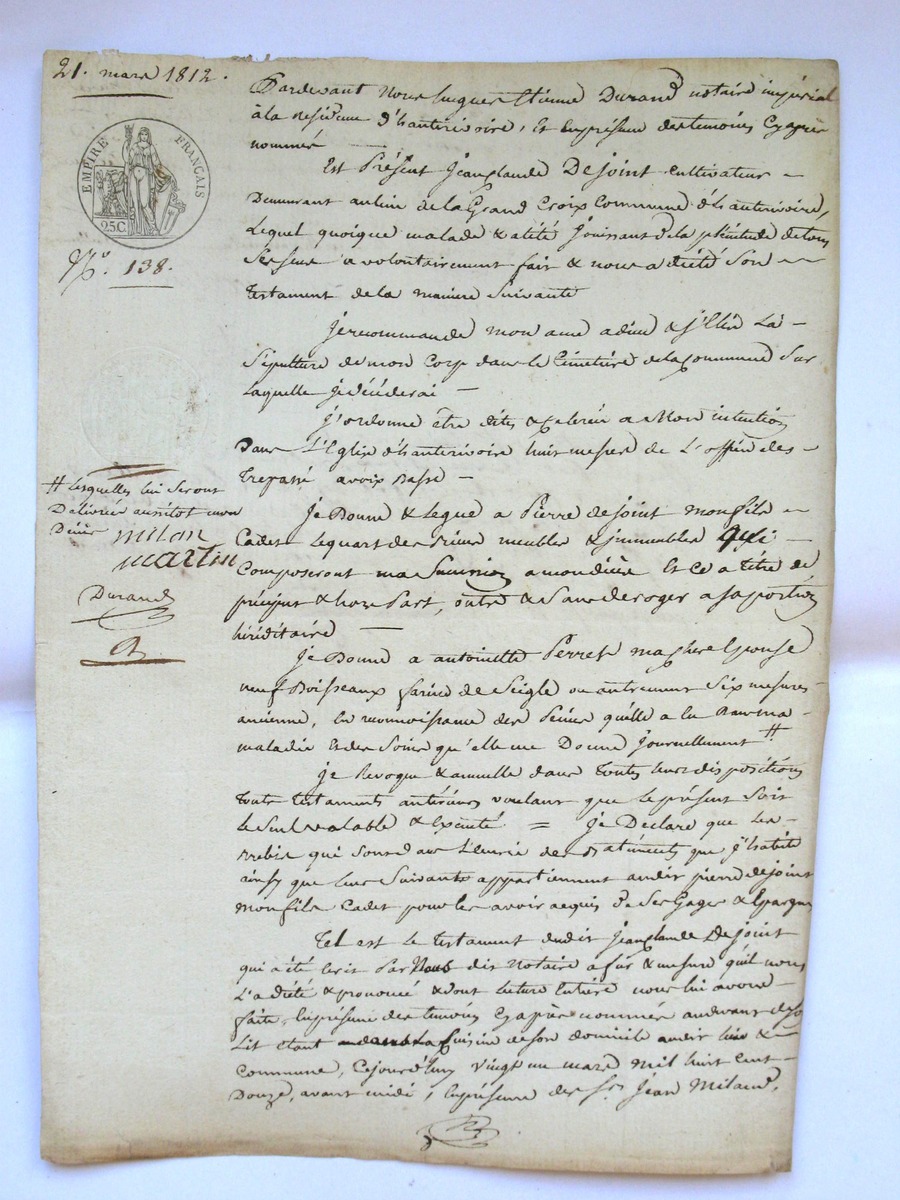 21. mars 1812.
EMPIRE FRANÇAIS
25C.
N.º 138.
Pardevant Nous hugues Etienne Durand notaire impérial
à la residence d'hauterivoire, et en présence des temoins cy après
nommés
Est Présent Jean Claude Dejoint cultivateur
Demeurant au lieu de la Grand Croix commune d'hauterivoire,
Lequel quoique malade & alité Jouissant de la plénitude de tous
Ses sens a volontairement fait & nous a dicté Son
testament de la maniere Suivante
Je recommande mon ame a dieu & j'Elis La
Sépulture de mon Corp dans le Cimetiére de la Commune Sur
Laquelle je décéderai
J'ordonne être dites & Celebrées a Mon intention
Dans L'Eglise d'hauterivoire huit messes de L'office des
trepassé a voix Basse
Je Donne & Legue a Pierre dejoint mon fils
Cadet Le quart des Biens meubles & immeubles qui
Composeront ma Succession a mon décès Et Ce a titre de
préciput & hors Part, outre & Sans deroger a sa portion
héréditaire
Je Donne a antoinette Perret ma chere Epouse
neuf Boisseaux farine de Seigle ou autrement Six mesures
ancienne, En reconnoissance des Peines qu'elle a eu dans ma
maladie Et des Soins qu'elle me Donne journellement #
# Lesquelles lui Seront
Délivrées aussitot mon
Décès
milan
martin
Durand
Je Revoque & annulle dans toutes leurs dispositions
touts testaments antérieurs voulant que le présent Soit
Le Seul valable & Executé = Je Declare que Les
Brebis qui Sont dans L'Ecurie des Batiments que j'habite
ainsy que leurs Suivants appartiennent audit pierre dejoint
mon fils Cadet pour les avoir acquis de Ses Gages & Epargnes
Tel est le testament dudit Jean Claude Dejoint
qui a été Ecrit Par Nous dit Notaire a fur & mesure qu'il nous
L'a dicté & prononcé & dont lecture Entière nous lui avons
faite, En présence des temoins Cy après nommés au devant de son
Lit Etant dans La Cuisine de son domicile audit lieu &
Commune, Cejourd'huy vingt un mars mil huit Cent
Douze, avant midi, En présence des Srs Jean Milan,